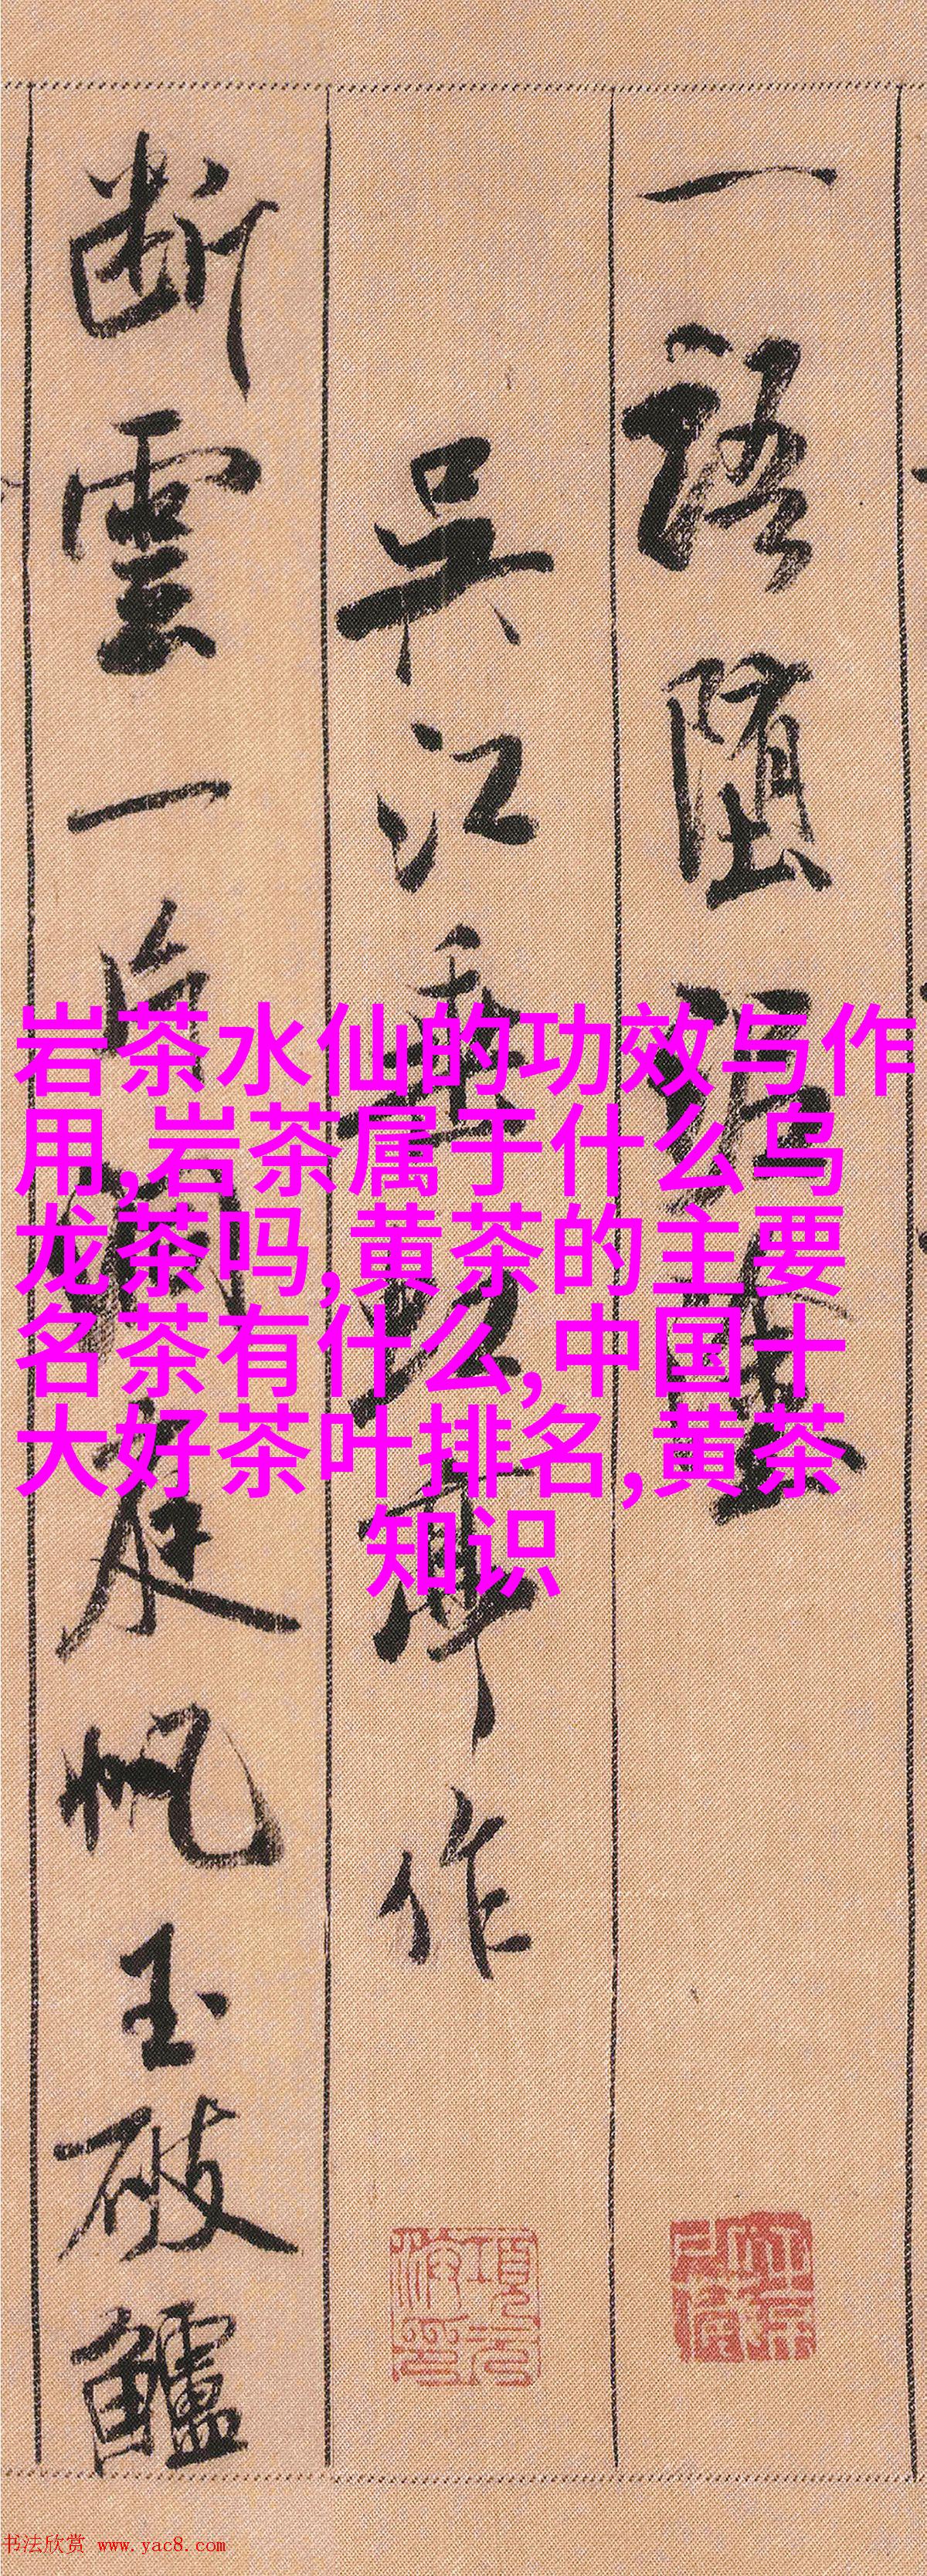 一語墮泥塗
吳江垂虹亭作
断雲一片洞庭帆玉破鱸
岩茶水仙的功效与作
用,岩茶属于什么乌
龙茶吗,黄茶的主要
名茶有什么,中国十
大好茶叶排名,黄茶
知识
书法欣赏 www.yac8.com